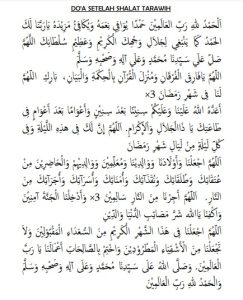 DO'A SETELAH SHALAT TARAWIH
اَلْحَمْدُ لِلّٰهِ رَبِّ الْعَالَمِيْنَ حَمْدًا يُوَافِي نِعَمَهُ وَيُكَافِئُ مَزِيْدَهُ يَارَبَّنَا لَكَ
الْحَمْدُ كَمَا يَنْبَغِي لِجَلَالِ وَجْهِكَ الْكَرِيْمِ وَعَظِيْمِ سُلْطَانِكَ اَللّٰهُمَّ
صَلِّ عَلَى سَيِّدِنَا مُحَمَّدٍ وَعَلَى آلِهِ وَصَحْبِهِ وَسَلَّمَ
اَللّٰهُمَّ يَافَارِقَ الْفُرْقَانِ وَمُنْزِلَ الْقُرْآنِ بِالْحِكْمَةِ وَالْبَيَانِ، بَارِكِ اللّٰهُمَّ
لَنَا فِى شَهْرِ رَمَضَانَ ×3
أَعَدَّهُ اللهُ عَلَيْنَا وَعَلَيْكُمْ سِنِيْنًا بَعْدَ سِنِيْنٍ وَأَعْوَامًا بَعْدَ أَعْوَامٍ فِى
طَاعَتِكَ يَا ذَاالْجَلَالِ وَالْاِكْرَامِ. اَللّٰهُمَّ إِنَّ لَكَ فِى هَذِهِ اللَّيْلَةِ وَفِى
كُلِّ لَيْلَةٍ مِنْ لَيَالِ شَهْرِ رَمَضَانَ
اَللّٰهُمَّ اجْعَلْنَا وَأَوْلَادَنَا وَوَالِدِيْنَا وَمُعَلِّمِيْنَ وَوَالِدِيْهِمْ وَالْحَاضِرِيْنَ مِنْ
عُتَقَائِكَ وَطُلَقَائِكَ وَنُقَذَائِكَ وَأُمَنَائِكَ وَأُسَرَآئِكَ وَأُجَرَآئِكَ مِنَ
النَّارِ. اَللّٰهُمَّ أَجِرْنَا مِنَ النَّارِ سَالِمِيْنَ ×3 وَأَدْخِلْنَا الْجَنَّةَ آمِنِيْنَ
وَاكْفِنَا يَااَللهُ شَرَّ مَصَائِبِ الدُّنْيَا وَالدِّيْنِ
اَللّٰهُمَّ اجْعَلْنَا فِى هَذَا الشَّهْرِ الْكَرِيْمِ مِنَ السُّعَدَاءِ الْمَقْبُوْلِيْنَ وَلَا
تَجْعَلْنَا مِنَ الْأَشْقِيَاءِ الْمَطْرُوْدِيْنَ وَاخْتِمْ بِالصَّالِحَاتِ أَعْمَالَنَا يَا رَبَّ
الْعَالَمِيْنَ. وَصَلَّى اللهُ عَلَى سَيِّدِنَا مُحَمَّدٍ وَعَلَى آلِهِ وَصَحْبِهِ وَسَلَّمَ
وَالْحَمْدُ لِلّٰهِ رَبِّ الْعَالَمِيْنَ